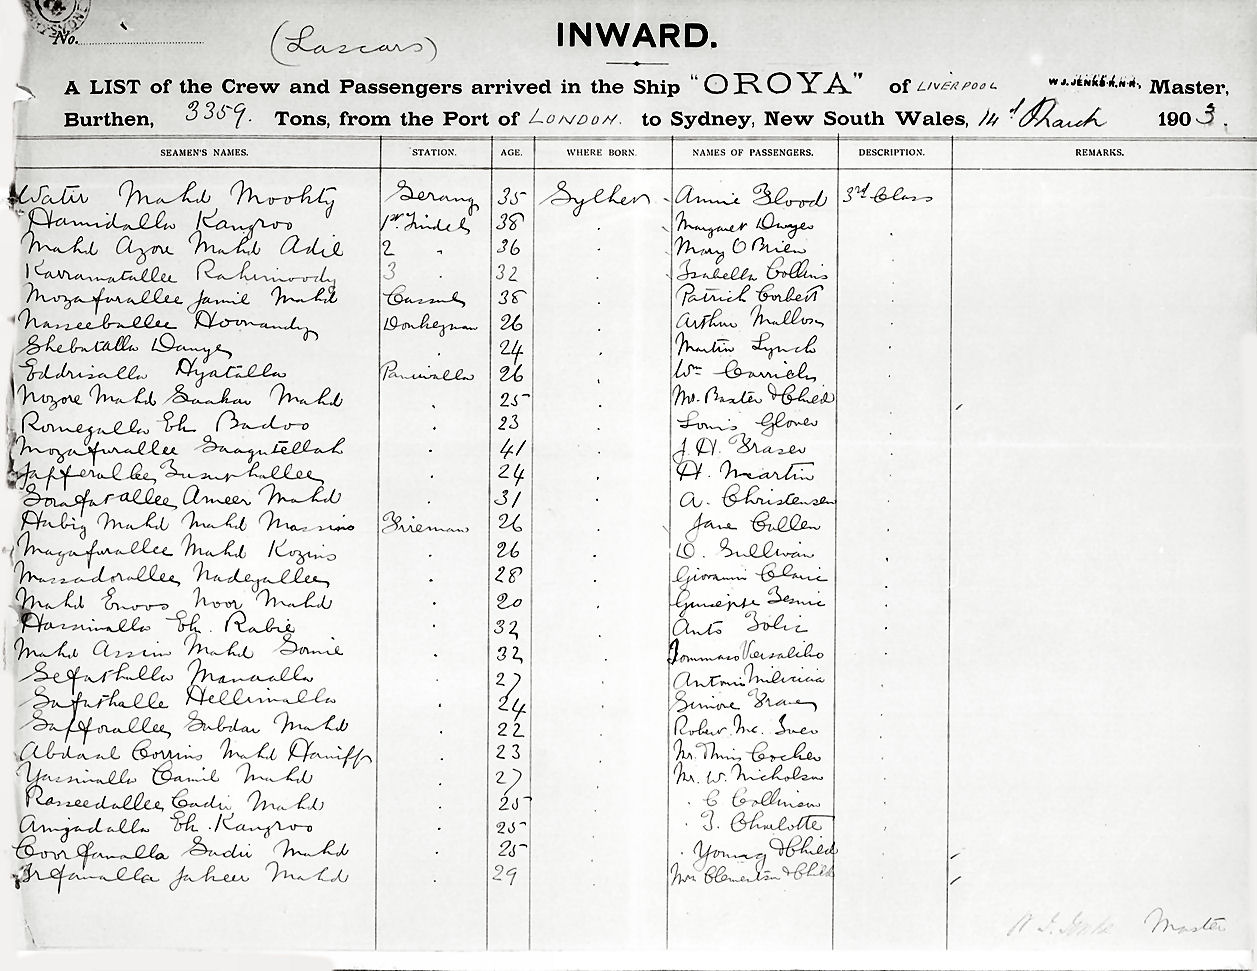 No.
(Lascars)
INWARD.
A LIST of the Crew and Passengers arrived in the Ship "OROYA" of LIVERPOOL W.J. JENKS R.N.R., Master,
Burthen, 3359. Tons, from the Port of LONDON. to Sydney, New South Wales, 14 March 1903.
SEAMEN'S NAMES. STATION. AGE. WHERE BORN. NAMES OF PASSENGERS. DESCRIPTION. REMARKS.
Watir Mahd Mookty Serang 35 Sylhet Annie Flood 3rd Class
Hamidalla Kangroo 1st Tindel 38 Margaret Dwyer
Mahd Azor Mahd Adil 2 " 36 Mary O'Brien
Karramatallee Rahimoody 3 32 Isabella Collins
Mozafurallee Jamil Mahd Cassab 38 Patrick Corbett
Nasseeballee Hoonandy Donkeyman 26 Arthur
Shebatalla Danye 24 Martin Lynch
Eddrisalla Hyatalla Paniwalla 26 Wm Carrick
Nozore Mahd Mahd 25 Baxter & Child
Romezalla Eh. Badoo 23 Louis Glover
Mozafurallee Saagutellah 41 J. H. Fraser
Jafferallee 24 H. Martin
Ameer Mahd 31 A. Christensen
Habig Mahd Mahd Massim Fireman 26 Jane Cullen
Mozafurallee Mahd Kozim 26 D. Sullivan
Massadorallee Nadezallee 28 Giovanni
Mahd Enoos Noor Mahd 20 Giuseppe
Hassinalla Eh. Rabie 32 Anto
Mahd Assim Mahd Somie 32 Tommaso
Sefathulla Manualla 27 Antonio
Safathalle Hellimalla 24 Simone
Safforallee Sabdar Mahd 22 Robert Mc.
Abdaal Corrim Mahd Haniff 23 Mr. Cocker
Yassinalla Camil Mahd 27 Mr. W. Nicholson
Rasseedallee Cadir Mahd 25 C Collinson
Amzadalla Eh. Kangroo 25 Charlotte
Coorfanalla Sadir Mahd 25 Young & Child
Irfanalla Jaheer Mahd 29 Mrs Clementson & Child
Master